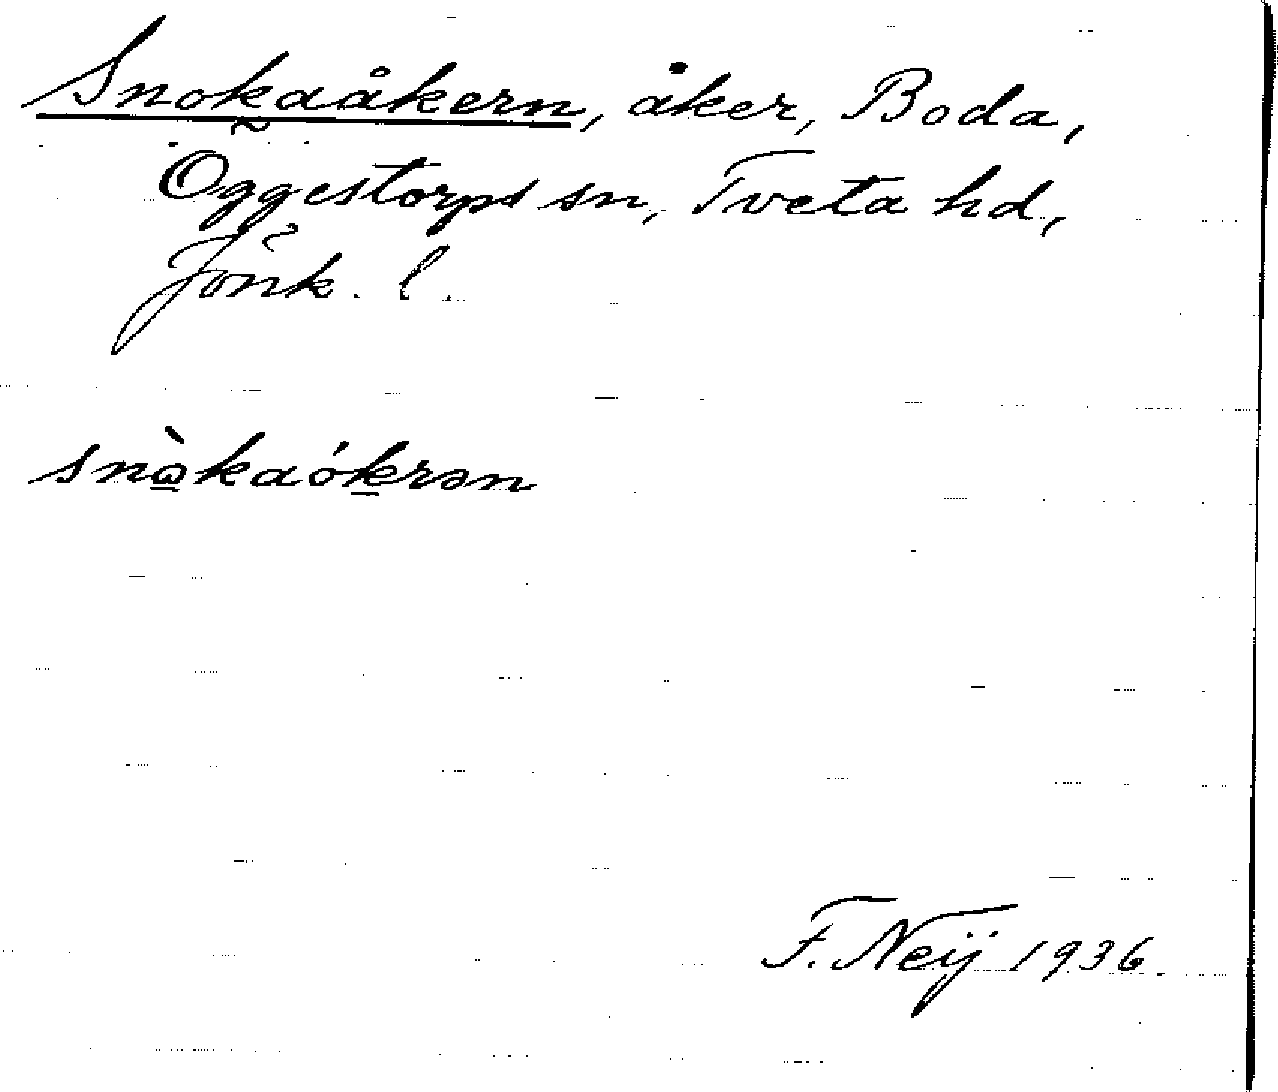 Snokaåkern, åker, Boda,
Öggestorps sn, Tveta hd,
Jönk. l.
snò̱kaóḵrən
F. Neij 1936.